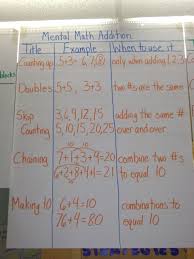 Mental Math Addition
Title Example When to use it
Counting up 5+3= 6,7,8 only when adding 1,2,3
blocks
Doubles 5+5, 3+3 two #s are the same
Skip 3,6,9,12,15 adding the same #
Counting 5,10,15,20,25 over and over.
10 10
Chaining 7+1+3+4=20 combine two #s
6+2+8+4+1=21 to equal 10
Making 10 6+4=10 combinations to
76+4=80 equal 10